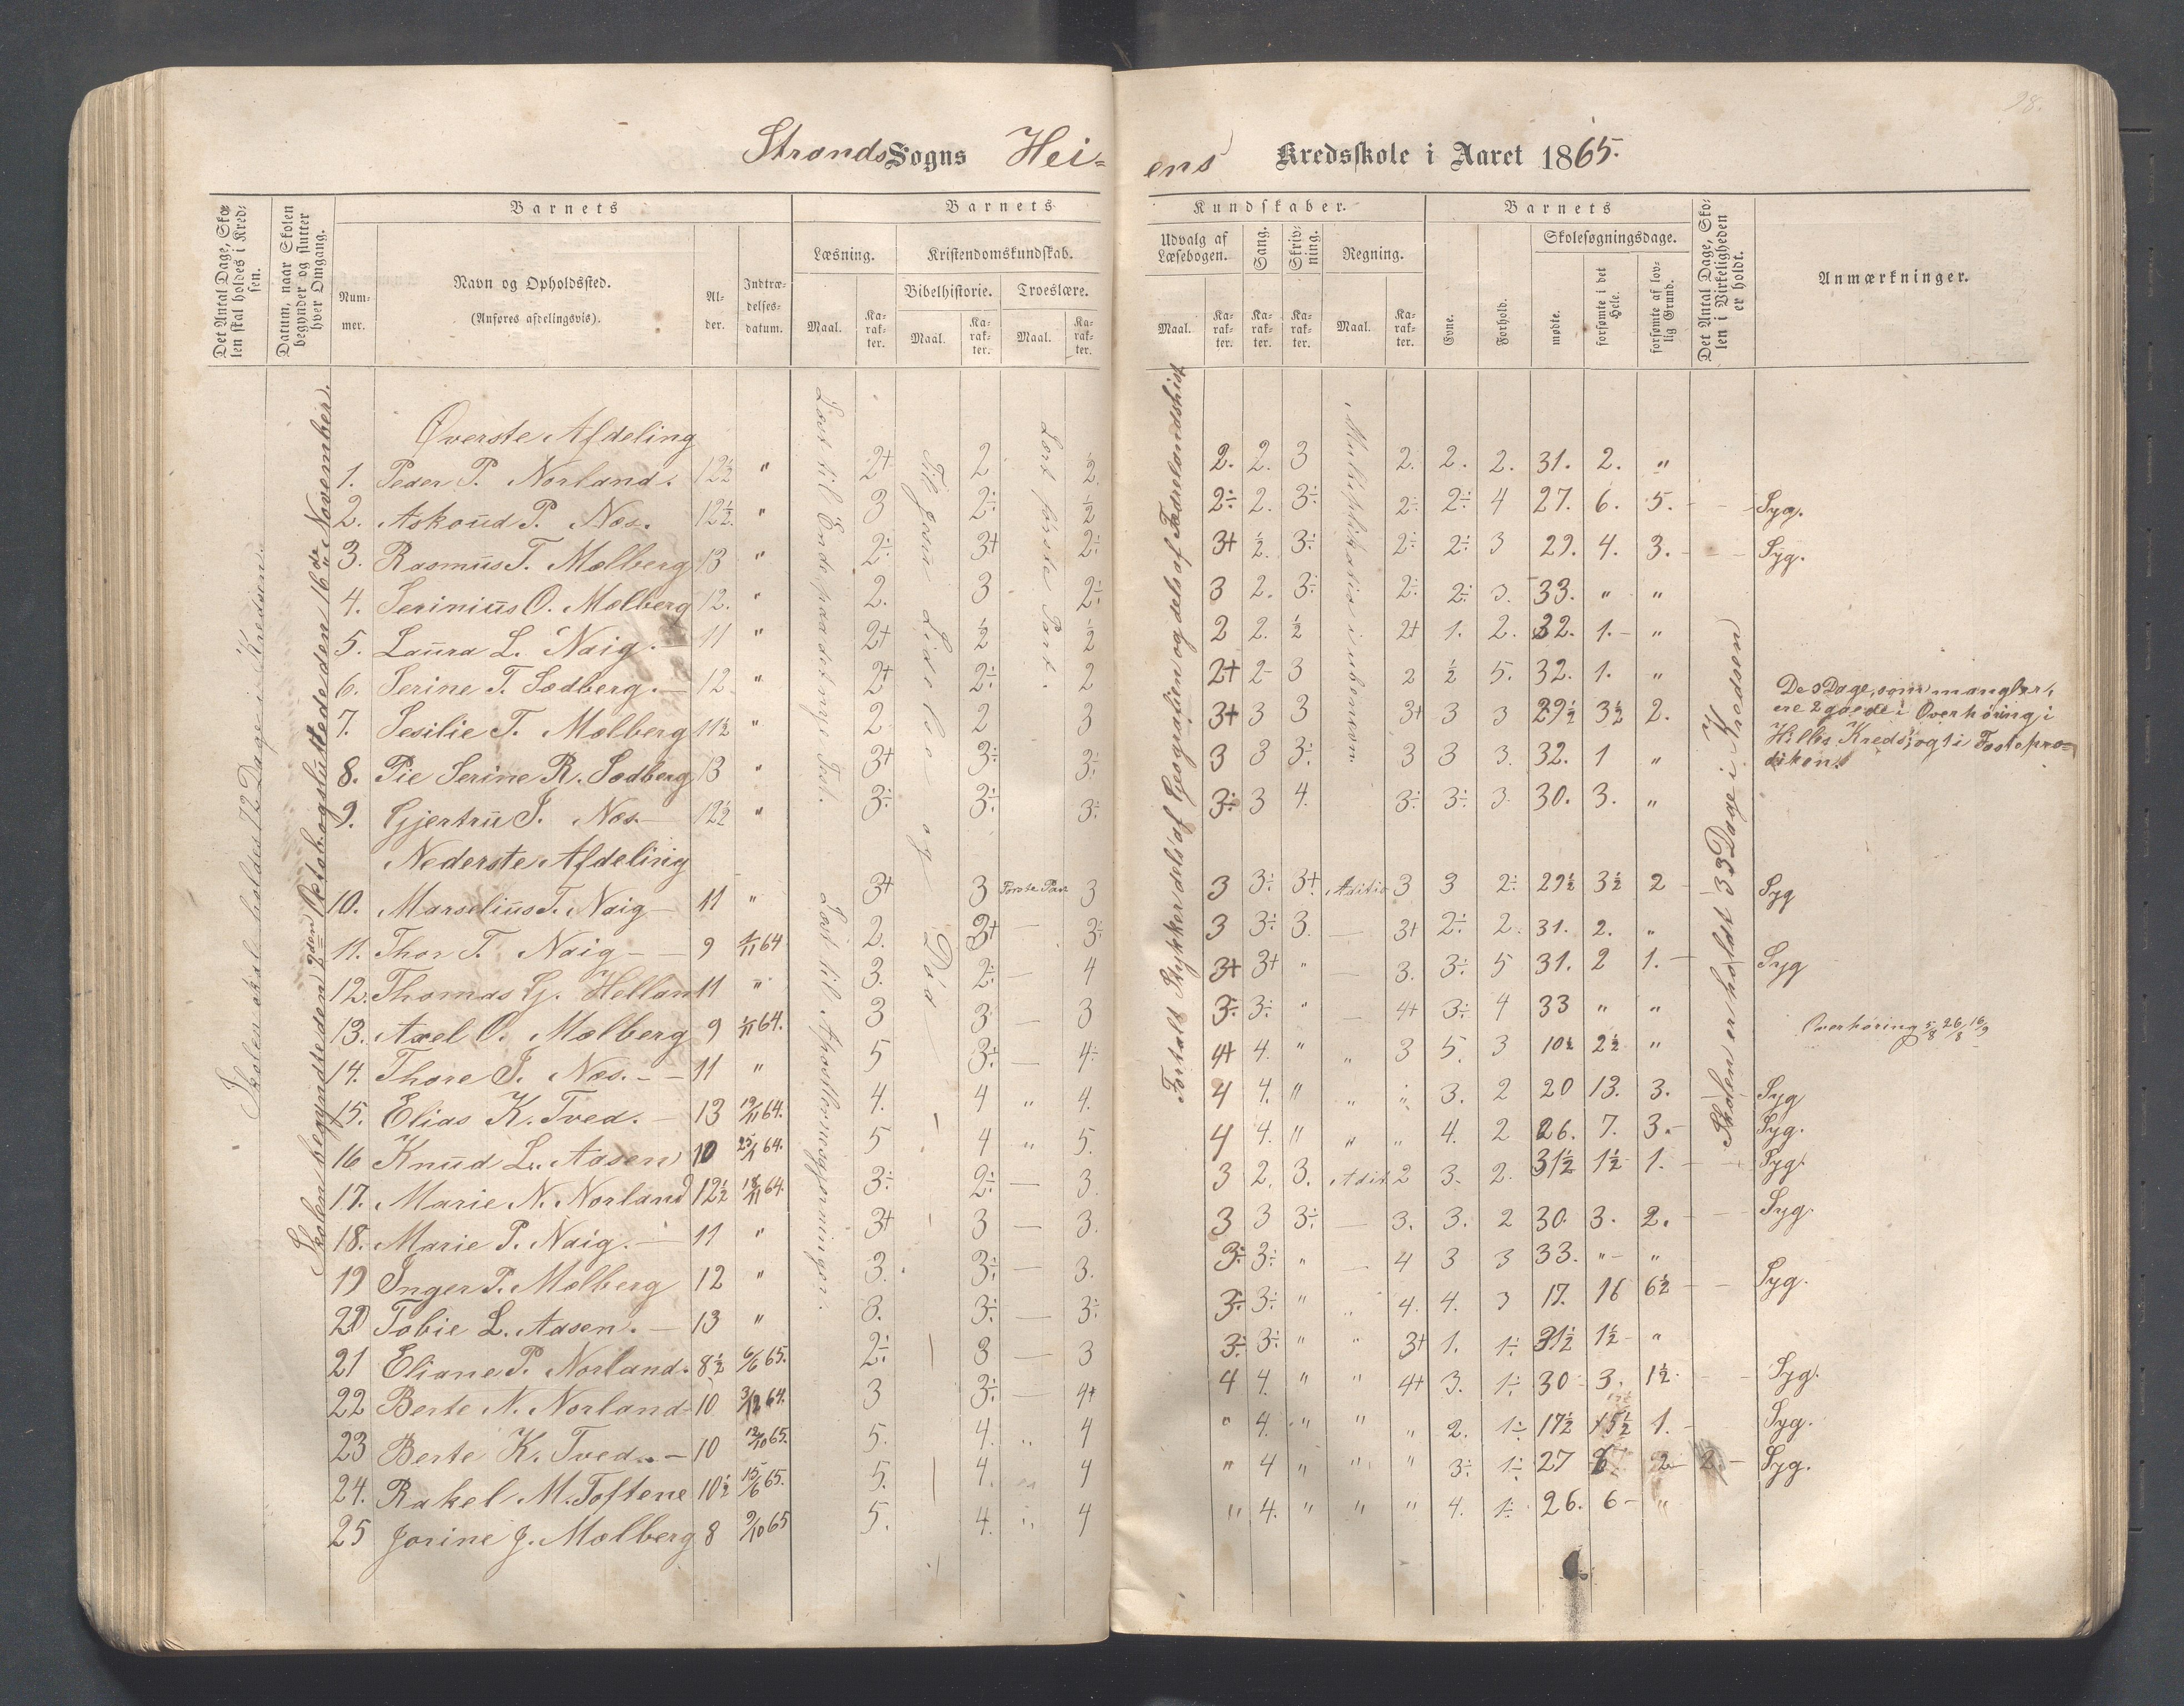 98.
Strands Sogns Hei=
ens Kredsskole i Aaret 1865.
Det Antal Dage, Skolen skal holdes i Kredsen.
Datum, naar Skolen begynder og slutter hver Omgang.
Barnets
Nummer.
Navn og Opholdssted.
(Anføres afdelingsvis).
Alder.
Indtrædelsesdatum.
Barnets
Læsning.
Kristendomskundskab.
Bibelhistorie.
Troeslære.
Maal.
Karakter.
Maal.
Karakter.
Maal.
Karakter.
Kundskaber.
Udvalg af Læsebogen.
Sang.
Skrivning.
Regning.
Maal.
Karakter.
Karakter.
Karakter.
Maal.
Karakter.
Barnets
Evne.
Forhold.
Skolesøgningsdage.
mødte.
forsømte i det Hele.
forsømte af lovlig Grund.
Det Antal Dage, Skolen i Virkeligheden er holdt.
Anmærkninger.
Skolen skal holdes 72 Dage i Kredsen.
Skolen begyndte den 2den Oktob og sluttede den 16de November.
Læst til Ende paa det nye Test.
Læst til Apostlernesgjerninger.
Til Jesu Lidelse og Død
Lært første Part.
Fortalt Stykker dels af Geografien og dels af Fædrelandshist
Multiplikation i ubenævn
Skolen er holdt 33 Dage i Kredsen
Øverste Afdeling
1. Peder P. Norland. 12½ " 2+ 2 ½ 2. 2. 3 2. 2. 2. 31. 2. "
2. Askoud P. Næs. 12½. " 3 2÷ ½ 2÷ 2. 3÷ 2÷ 2÷ 4 27. 6. 5. - - Syg.
3. Rasmus T. Mælberg 13 " 2÷ 3+ 2÷ 3+ ½. 3÷ 2÷ 2÷ 3 29. 4. 3. - - Syg.
4. Serinius O. Mælberg 12. " 2. 3 2÷ 3 2. 3÷ 2÷ 2÷ 3. 33. " "
5. Laura L. Naig. 11 " 2+ ½ ½ 2 2. ½ 2+ 1. 2. 32. 1. - "
6. Serine T. Sødberg. 12 " 2+ 2÷ 2 2+ 2- 3 2 ½ 5. 32. 1. "
7. Sesilie T. Mælberg 11½ " 2. 2 3 3+ 3 3 3+ 3 3 29½ 3½ 2.
8. Pie Serine R. Sødberg 13 " 3+ 3÷ 3÷ 3 3 3÷ 3 3 3. 32. 1 "
9. Gjertru S. Næs 12½ " 3÷ 3÷ 3÷ 3÷ 3 4. 3÷ 3÷ 3. 30. 3. "
De 3 Dage, som mangler,
ere 2 gaaede i Overhøring i
Hilles Kreds og 1 i Faste præ=
diken.
Nederste Afdeling
10. Marselius T. Naig 11 " 3+ 3 Første Part 3 3 3÷ 3+ Aditio 3 3 2÷ 29½ 3½ 2 Syg
11. Thor T. Naig 9 1/11 64 2. 3+ - 3÷ 3 3÷ 3. - 3+ 2÷ 2. 31. 2. "
12. Thomas G. Hellan 11 " 3. 2÷ - 4 3+ 3+ " - 3. 3÷ 5 31. 2 1. Syg
13. Axel O. Mælberg 9 1/11 64. 3 3 - 3 3÷ 3÷ " - 4+ 3÷ 4 33 " "
14. Thore S. Næs. 11 " 5 3÷ - 4÷ 4+ 4. " " 3 5. 3 10½ 2½ " Overhøring 5/8 26/8 16/9
15. Elias K. Tved. 13 19/11 64. 4. 4 " 4. 4 4. " " " 3. 2 20 13. 3. Syg
16 Knud L. Aasen 10 25/1 64. 5 4 " 5. 4 4. " " " 4. 2 26. 7. 3. Syg.
17. Marie N. Norland 12½ 18/11 64. 3÷ 2÷ - 3. 3 2. 3. Adit. 2 3. 2. 31½ 1½ 1. Syg.
18. Marie P. Naig. 11 " 3+ 3 - 3. 3 3 3÷ - 3. 3. 2 30. 3. 2. Syg.
19 Inger P. Mælberg 12 " 3. 3÷ - 3. 3÷ 3÷ " - 4 3 3 33. " "
20 Tobie L. Aasen. 13 " 3. 3÷ - 3÷ 3÷ 3÷ " " 4. 4. 3 17. 16 6½ Syg.
21 Eliane P. Norland. 8½ 6/6 65. 2÷ 3 - 3 3÷ 3÷ " " 3+ 1. 1÷ 31½ 1½ "
22 Berte N. Norland 10 3/12 64. 3 3÷ - 4+ 4 4. " " 4+ 3. 1÷ 30 3. 1½. Syg.
23 Berte K. Tved. 10 12/10 65. 5. 4. " 4 " 4. " " " 2. 1÷ 17½ 15½ 1. Syg.
24. Rakel M. Toftene 10½ 15/6 65. 5. 4. " 4 " 4 " " " 3÷ 1÷ 27 6 2 Syg.
25 Jorine J. Mælberg 8 9/10 65 5. 4. " 4 " 4. " " " 4. 1÷ 26. 6 "